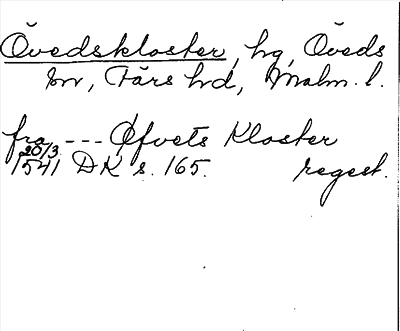 Övedskloster, hg, Öveds
sn, Färs hd, Malm. l.
fra --- Øfvets Kloster
20/3
1541 DK s. 165. regest.